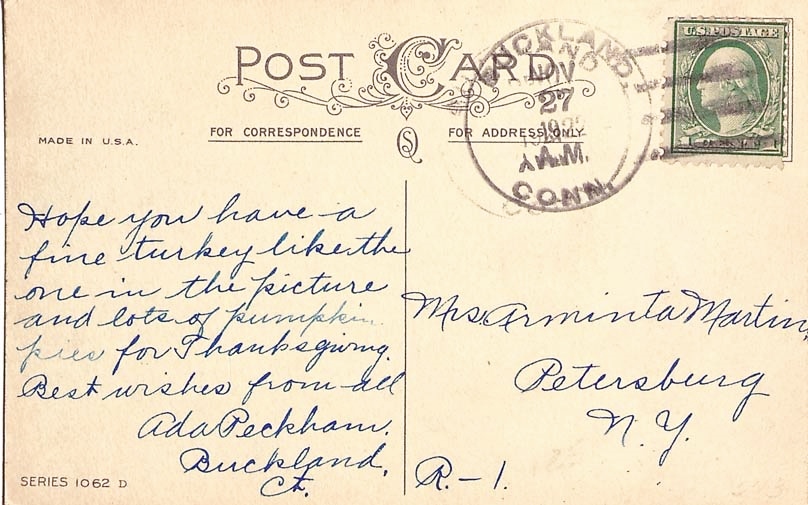 POST CARD
BUCKLAND.
NOV
27
1922
A.M.
CONN.
U.S. POSTAGE
MADE IN U.S.A.
FOR CORRESPONDENCE
FOR ADDRESS ONLY
Hope you have a
fine turkey like the
one in the picture
and lots of pumpkin
pies for Thanksgiving.
Best wishes from all
Ada Peckham.
Buckland,
Ct.
Mrs. Arminta Martin,
Petersburg
N.Y.
R.-1.
SERIES 1062 D